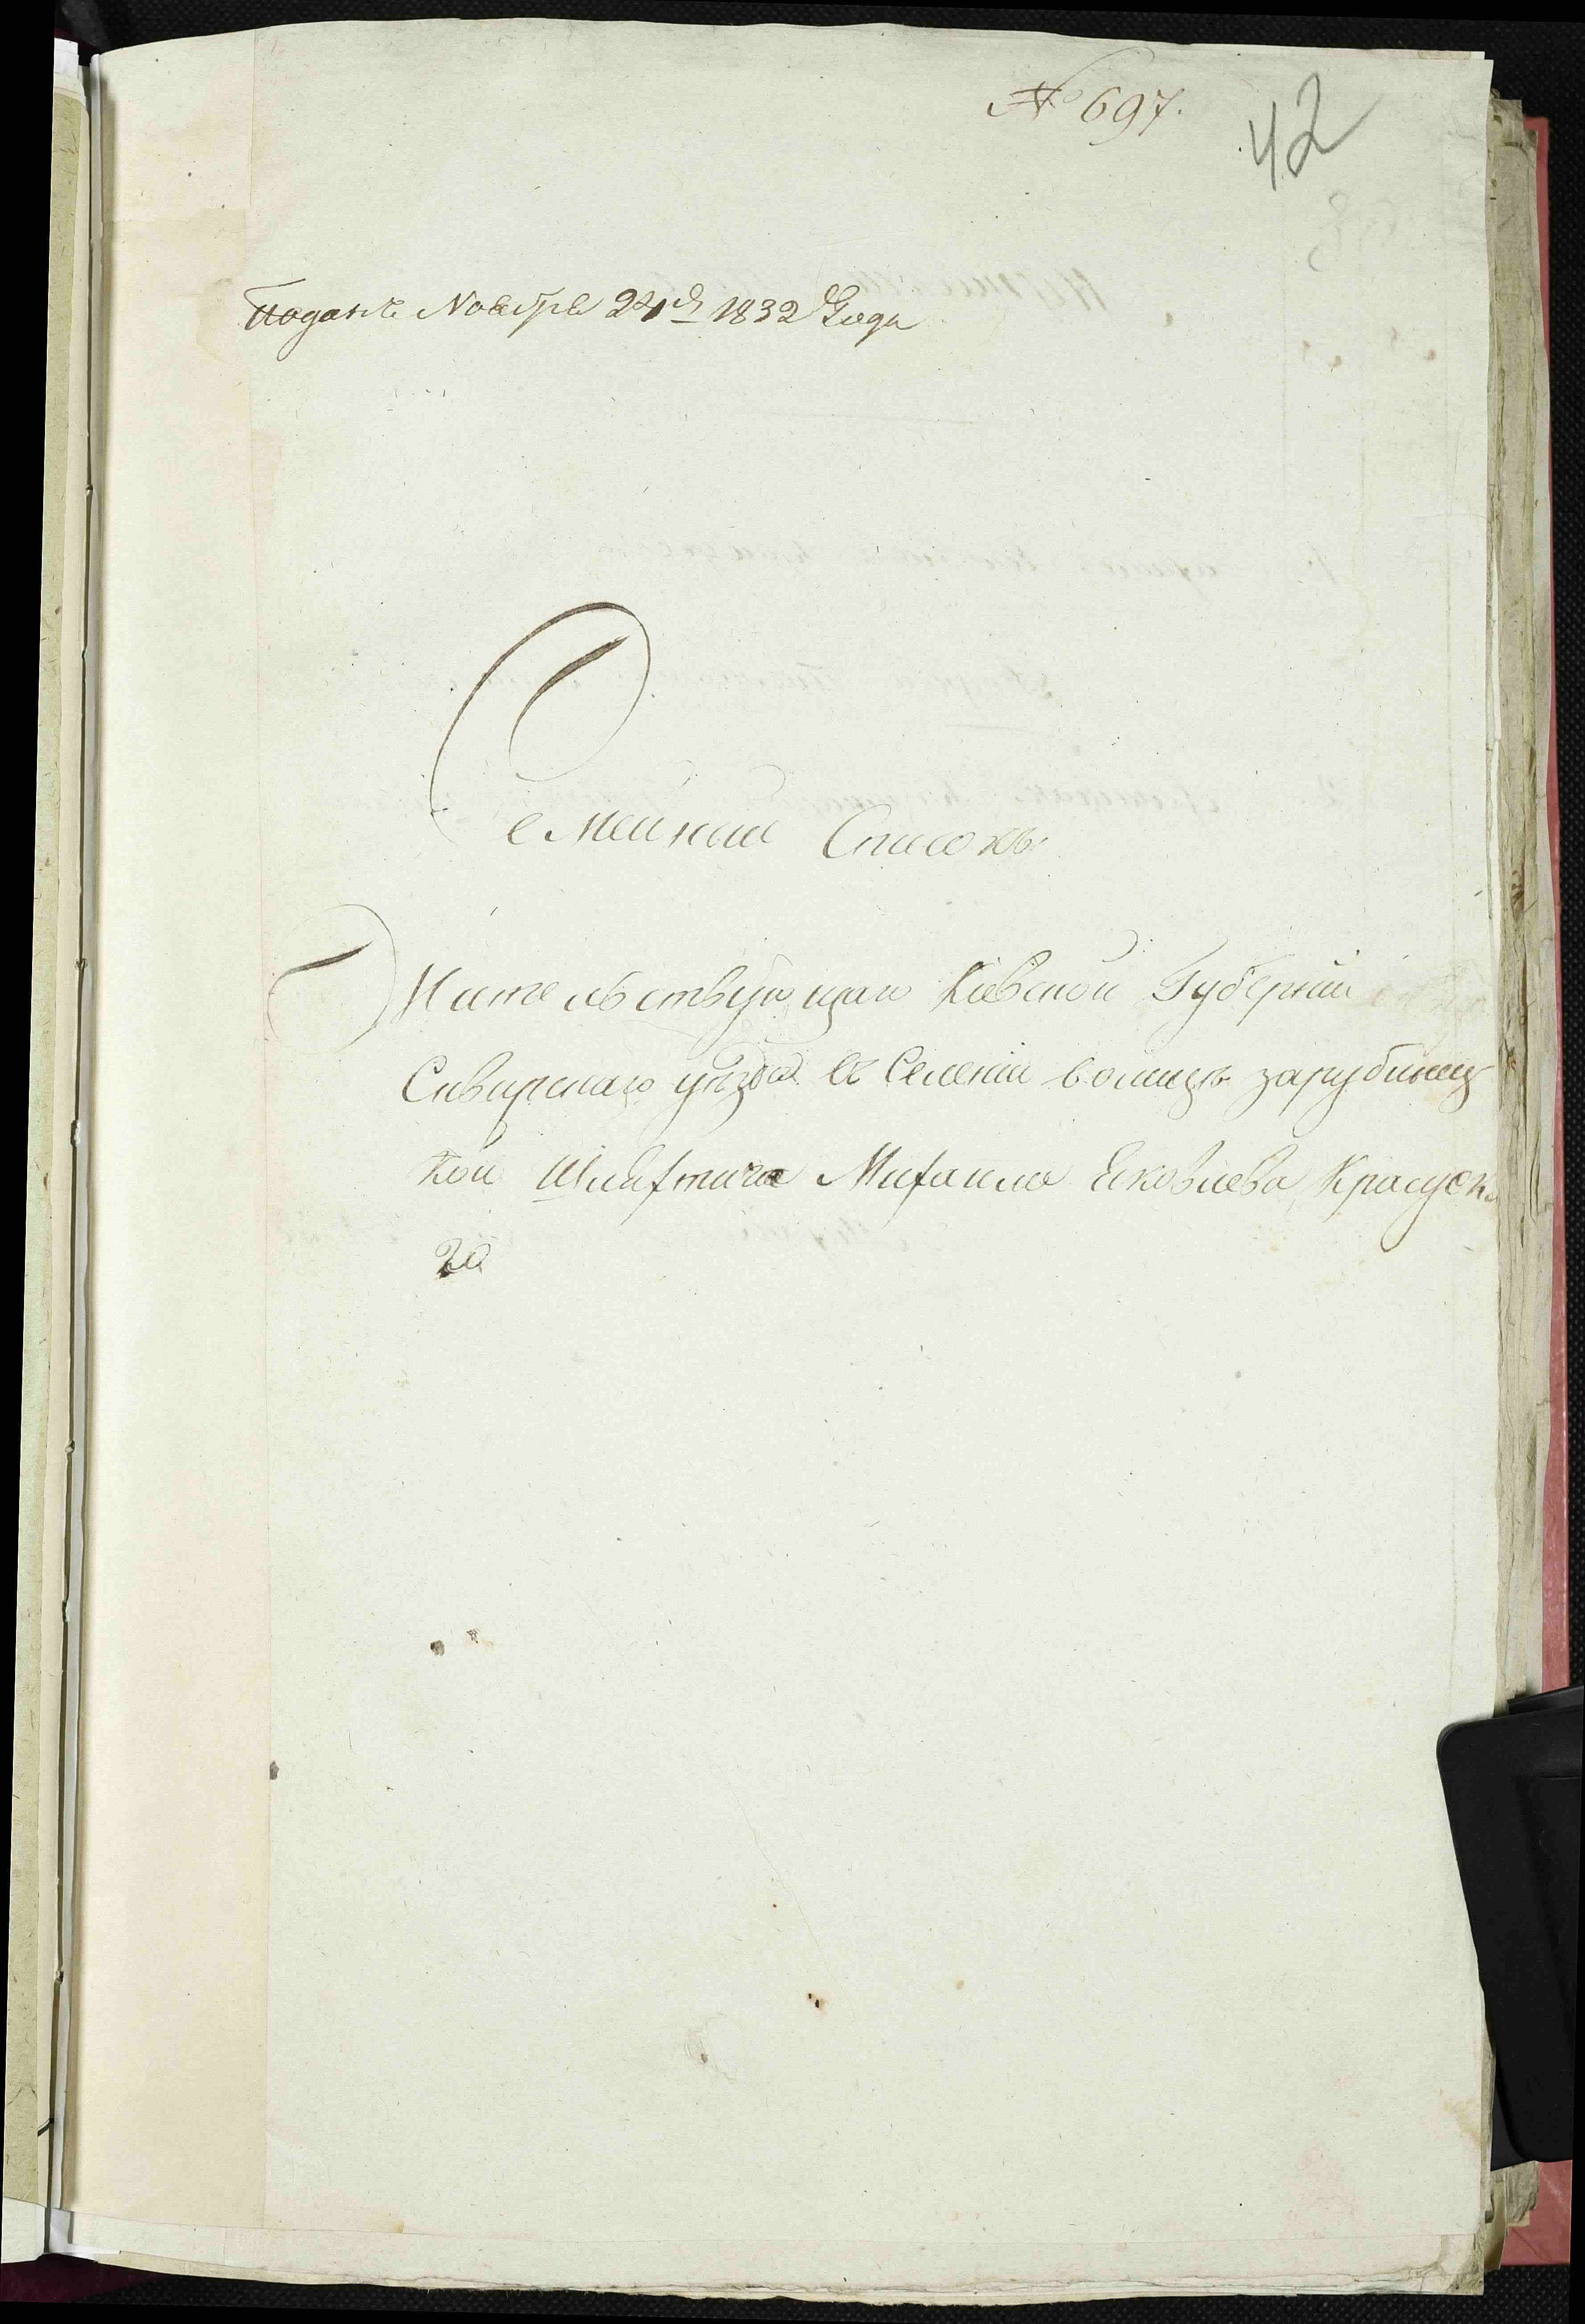 № 697.
42
Поданъ Ноября 24 д 1832 Года
Семейний Списокъ
Жительствующаго Кіевской Губерніи
Сквирскаго уѣзда въ Селеніи волицѣ зарубинец
кои Шляхтича Михаила Яковлева Красуск
го